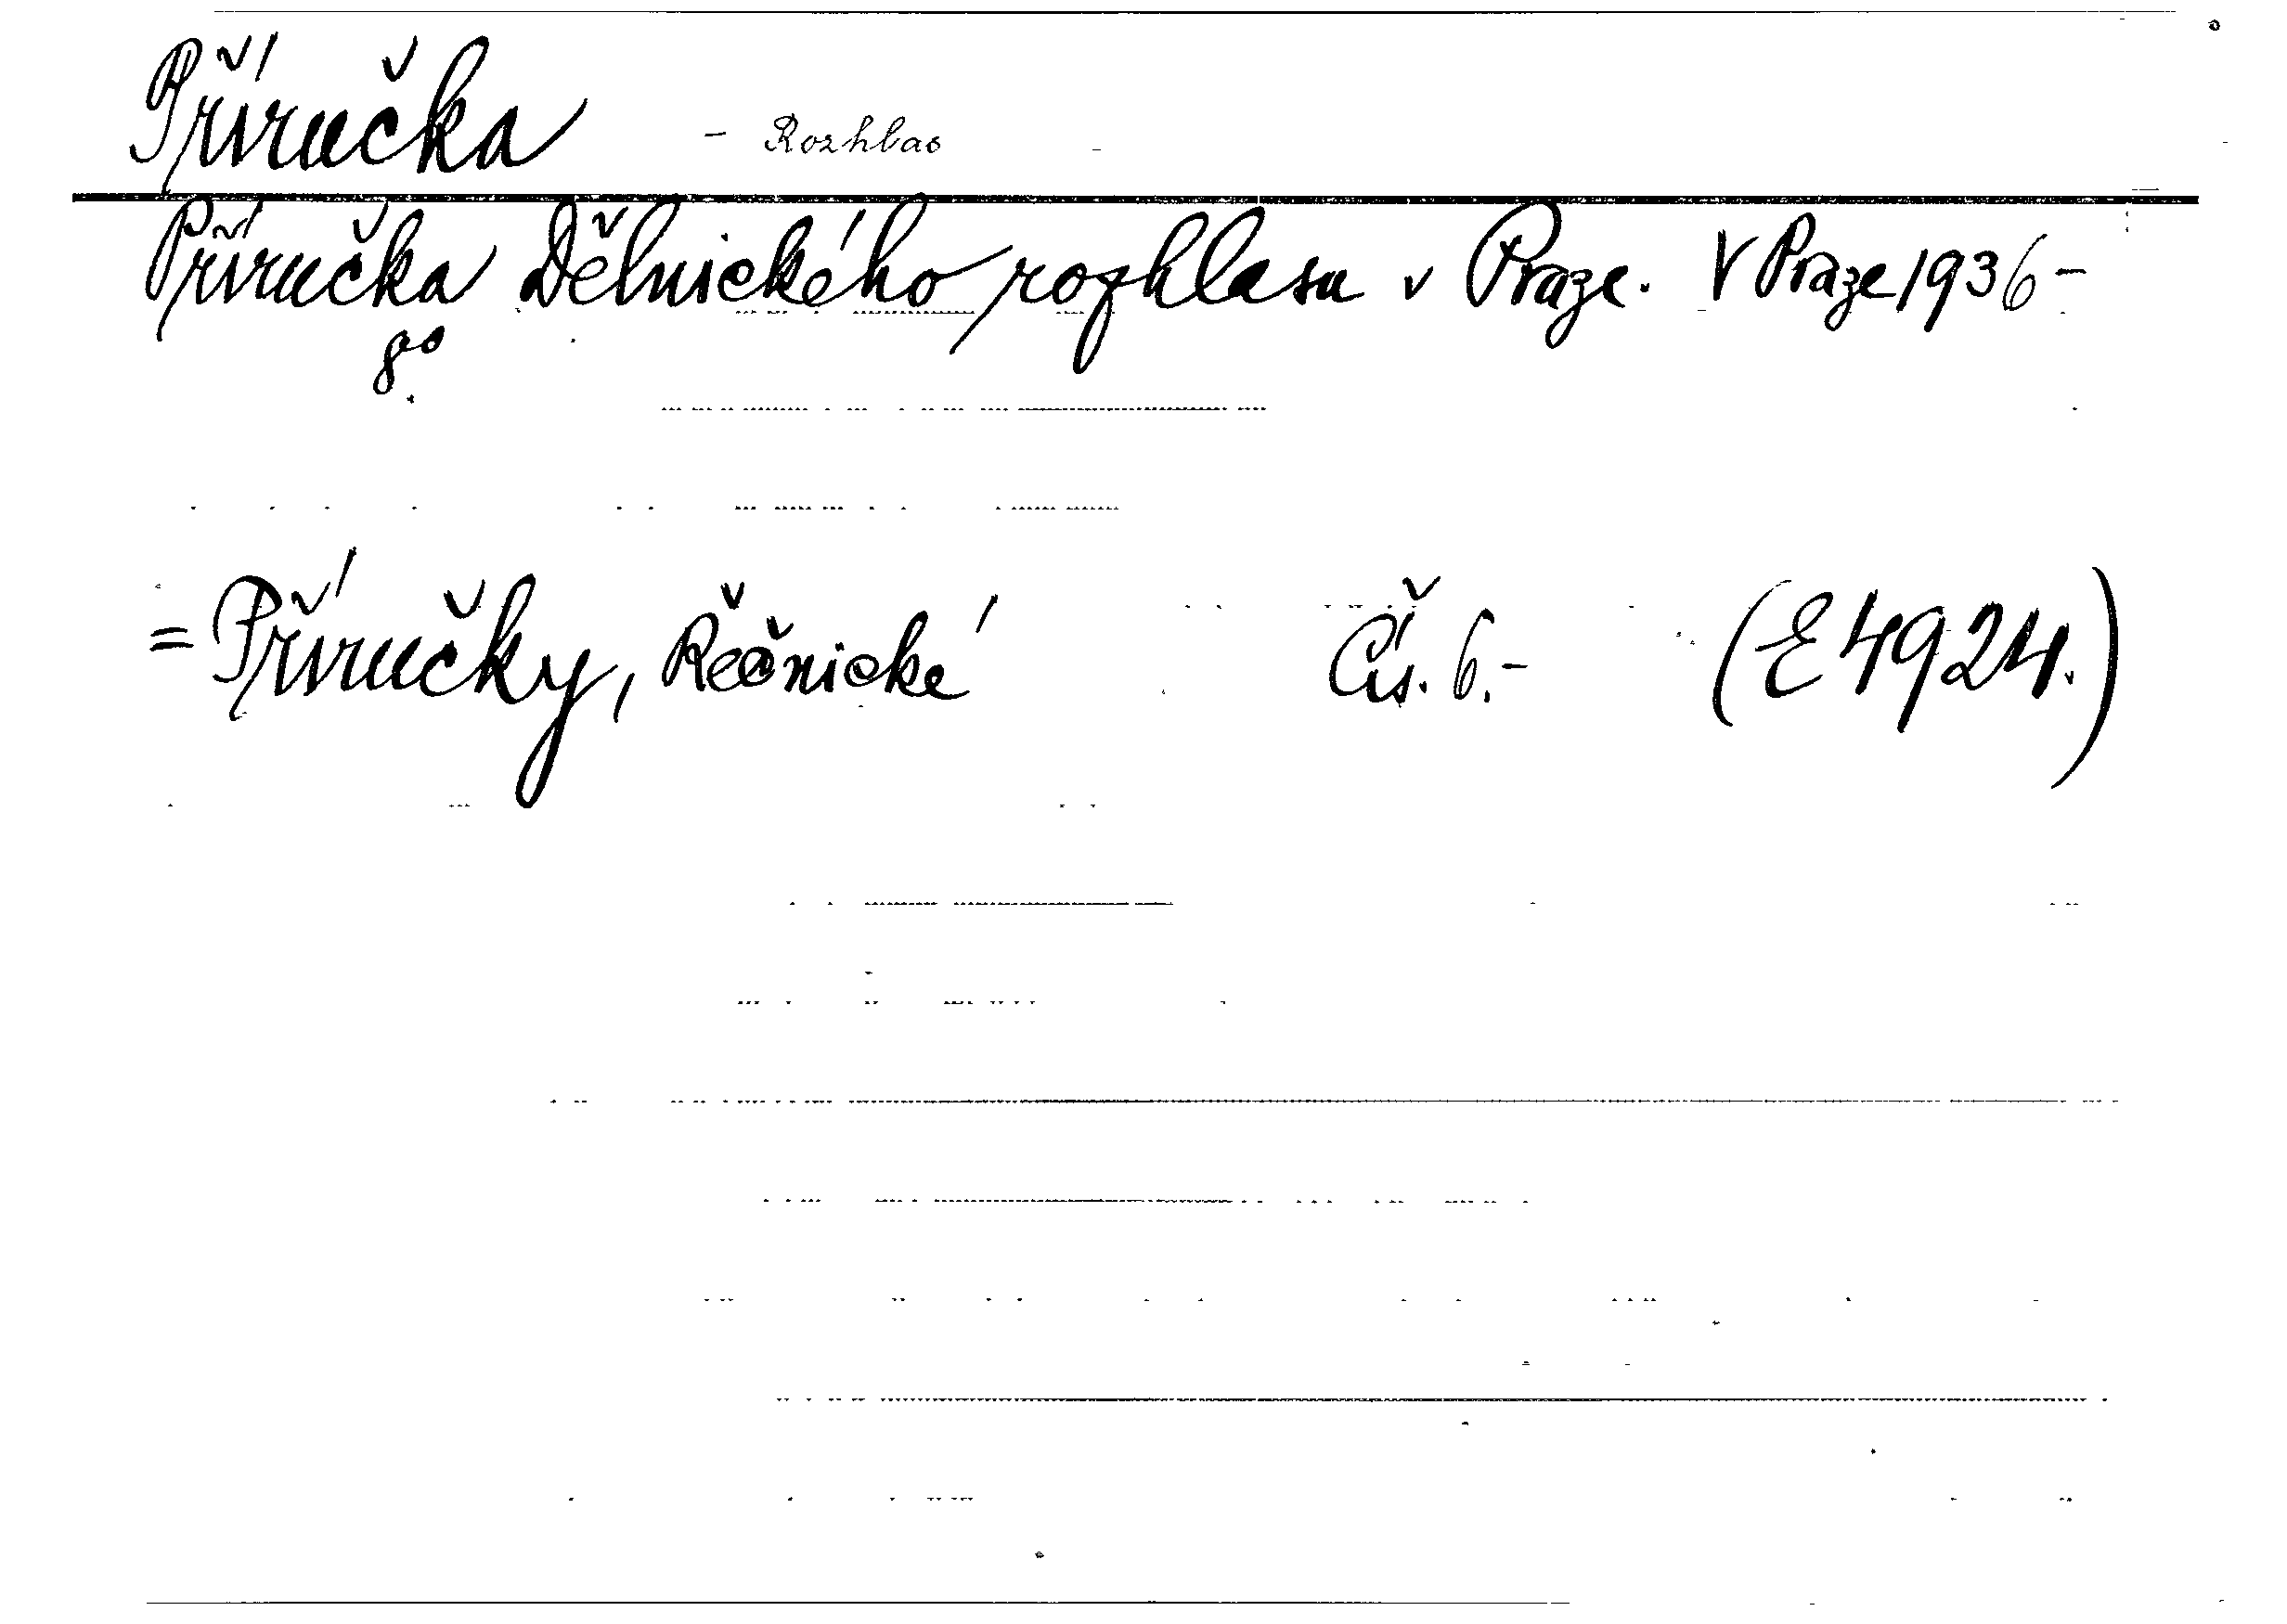 Příručka - Rozhlas
Příručka Dělnického rozhlasu v Praze. V Praze 1936-
8°.
= Příručky, Řečnické Čís. 6.- (E 4924.)